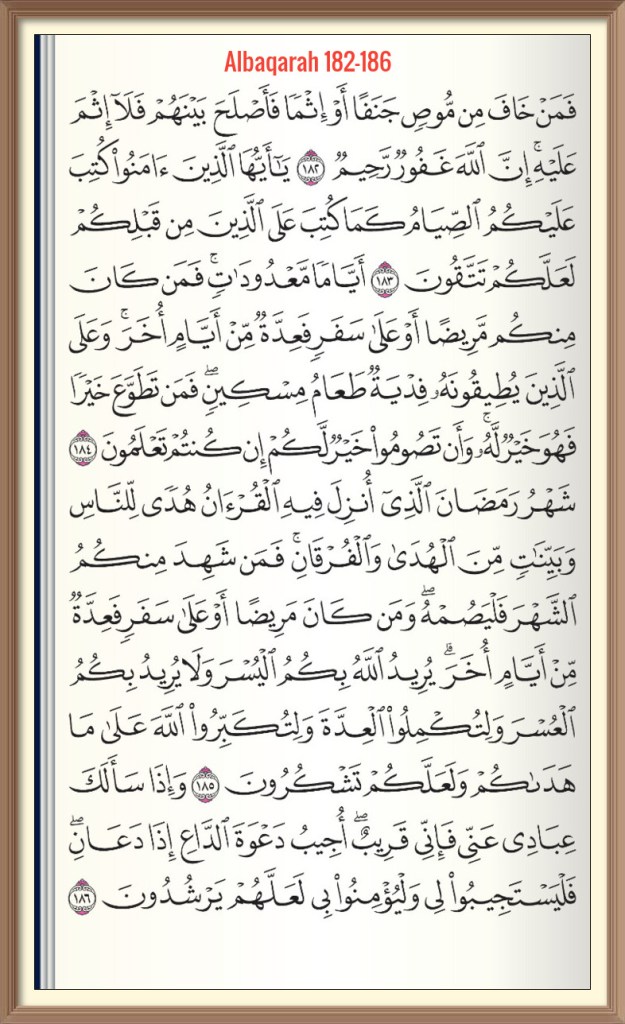 Albaqarah 182-186
فَمَنْ خَافَ مِن مُّوصٍ جَنَفًا أَوْ إِثْمًا فَأَصْلَحَ بَيْنَهُمْ فَلَآ إِثْمَ
عَلَيْهِ ۚ إِنَّ ٱللَّهَ غَفُورٌ رَّحِيمٌ ١٨٢ يَـٰٓأَيُّهَا ٱلَّذِينَ ءَامَنُوا۟ كُتِبَ
عَلَيْكُمُ ٱلصِّيَامُ كَمَا كُتِبَ عَلَى ٱلَّذِينَ مِن قَبْلِكُمْ
لَعَلَّكُمْ تَتَّقُونَ ١٨٣ أَيَّامًا مَّعْدُودَٰتٍ ۚ فَمَن كَانَ
مِنكُم مَّرِيضًا أَوْ عَلَىٰ سَفَرٍ فَعِدَّةٌ مِّنْ أَيَّامٍ أُخَرَ ۚ وَعَلَى
ٱلَّذِينَ يُطِيقُونَهُۥ فِدْيَةٌ طَعَامُ مِسْكِينٍ ۖ فَمَن تَطَوَّعَ خَيْرًا
فَهُوَ خَيْرٌ لَّهُۥ ۚ وَأَن تَصُومُوا۟ خَيْرٌ لَّكُمْ إِن كُنتُمْ تَعْلَمُونَ ١٨٤
شَهْرُ رَمَضَانَ ٱلَّذِىٓ أُنزِلَ فِيهِ ٱلْقُرْءَانُ هُدًى لِّلنَّاسِ
وَبَيِّنَـٰتٍ مِّنَ ٱلْهُدَىٰ وَٱلْفُرْقَانِ ۚ فَمَن شَهِدَ مِنكُمُ
ٱلشَّهْرَ فَلْيَصُمْهُ ۖ وَمَن كَانَ مَرِيضًا أَوْ عَلَىٰ سَفَرٍ فَعِدَّةٌ
مِّنْ أَيَّامٍ أُخَرَ ۗ يُرِيدُ ٱللَّهُ بِكُمُ ٱلْيُسْرَ وَلَا يُرِيدُ بِكُمُ
ٱلْعُسْرَ وَلِتُكْمِلُوا۟ ٱلْعِدَّةَ وَلِتُكَبِّرُوا۟ ٱللَّهَ عَلَىٰ مَا
هَدَىٰكُمْ وَلَعَلَّكُمْ تَشْكُرُونَ ١٨٥ وَإِذَا سَأَلَكَ
عِبَادِى عَنِّى فَإِنِّى قَرِيبٌ ۖ أُجِيبُ دَعْوَةَ ٱلدَّاعِ إِذَا دَعَانِ ۖ
فَلْيَسْتَجِيبُوا۟ لِى وَلْيُؤْمِنُوا۟ بِى لَعَلَّهُمْ يَرْشُدُونَ ١٨٦